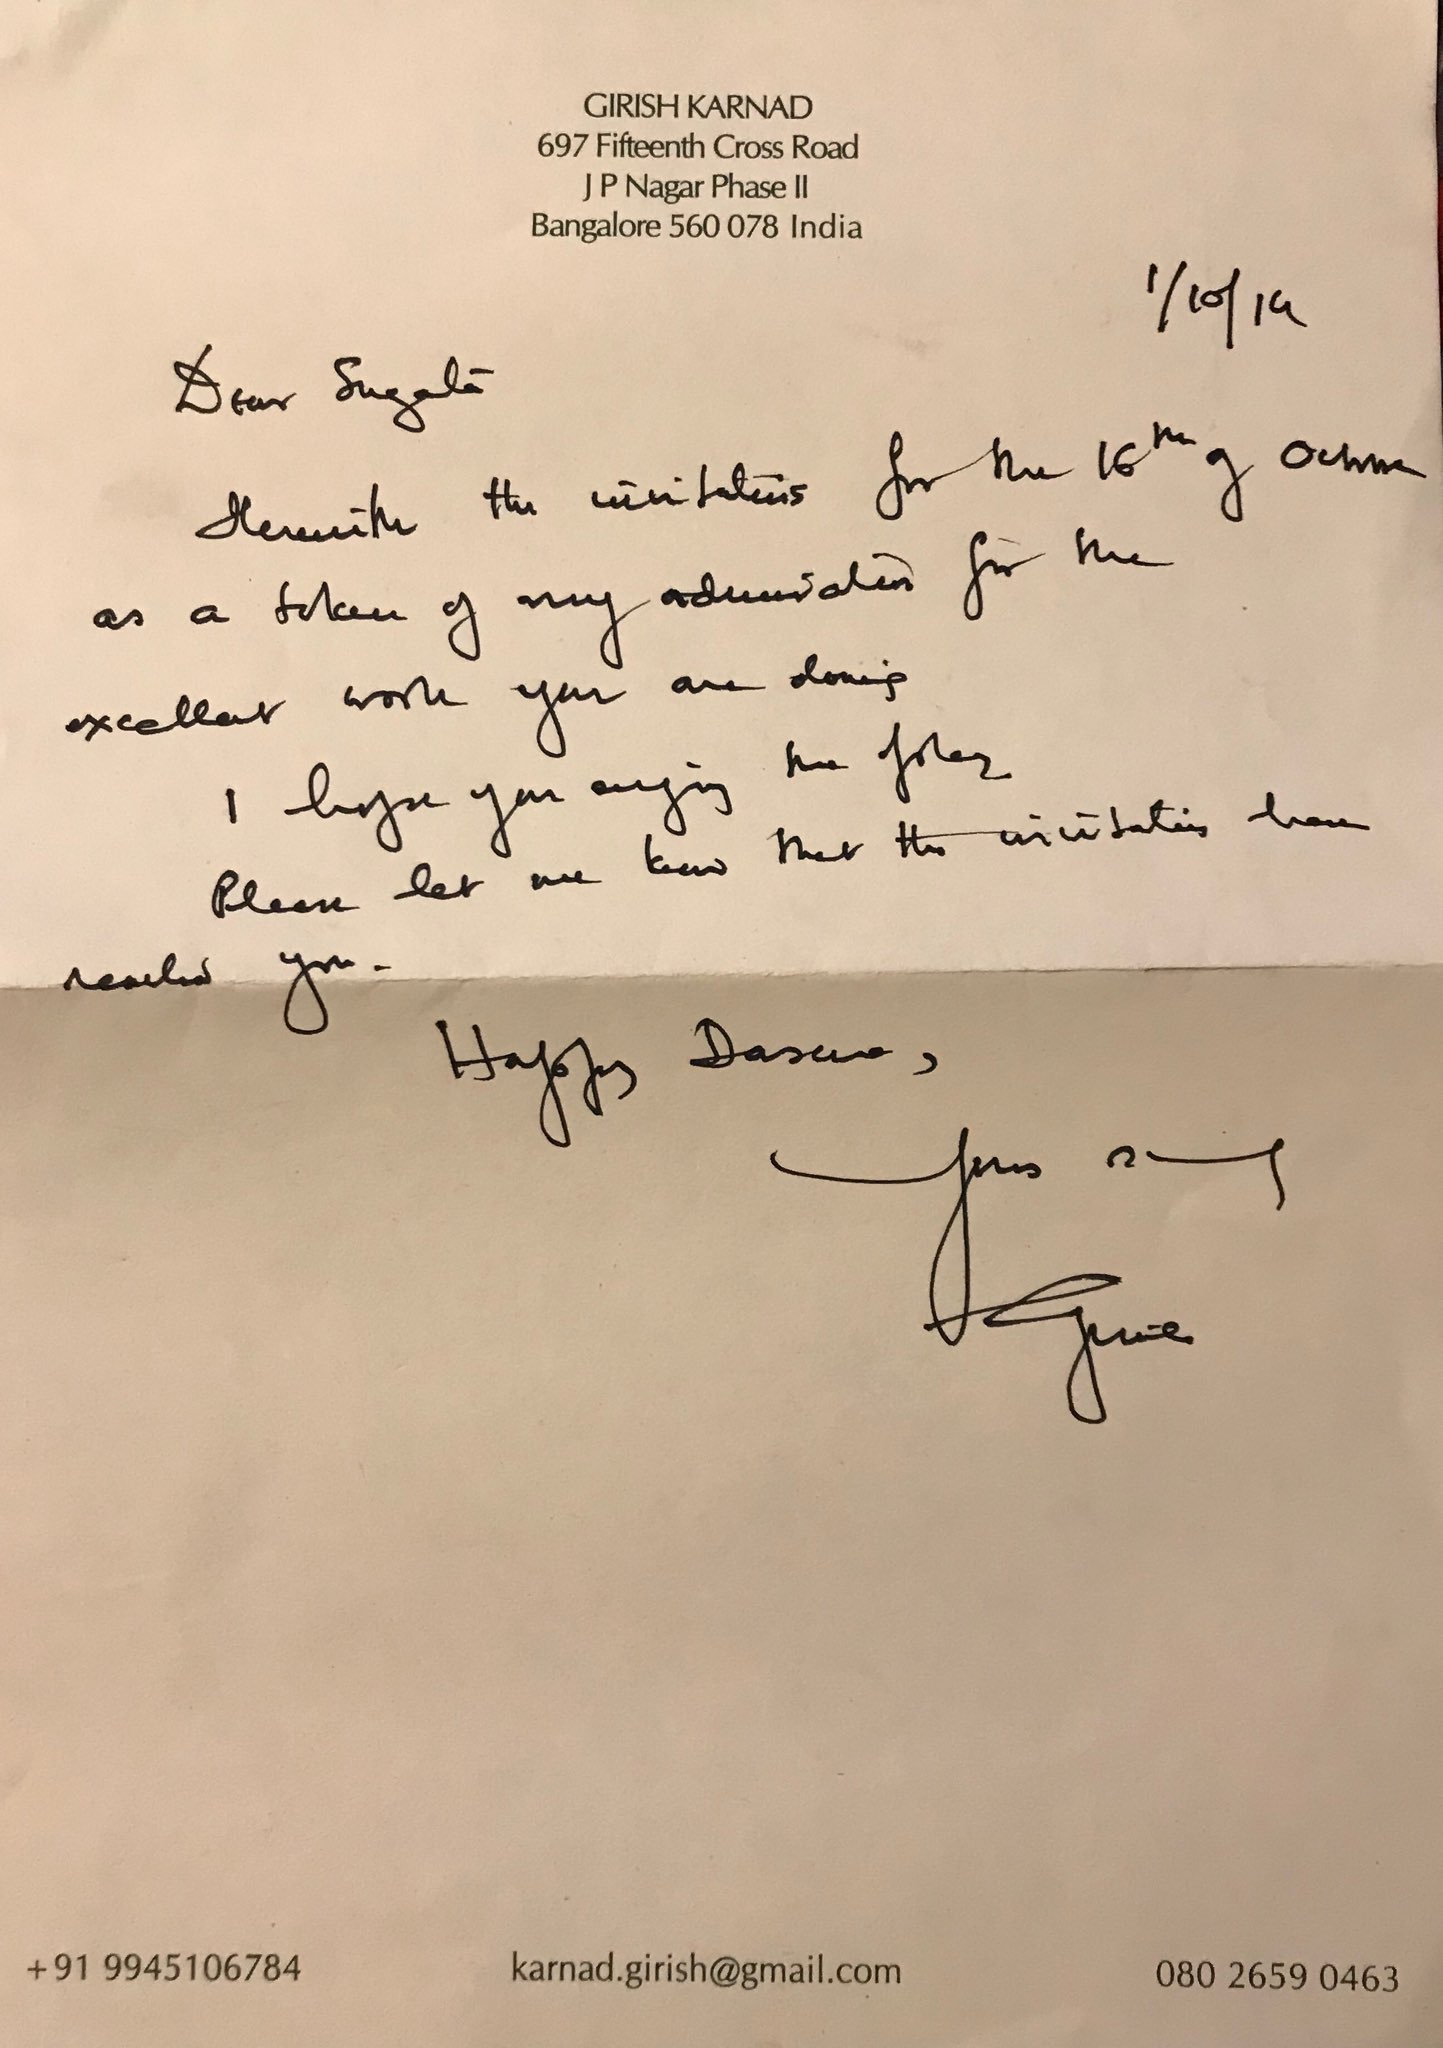 GIRISH KARNAD
697 Fifteenth Cross Road
J P Nagar Phase II
Bangalore 560 078 India
1/10/14
Dear Sugata
Herewith the invitations for the 16th of October
as a token of my admiration for the
excellent work you are doing
I hope you enjoy the play
Please let me know that the invitations have
reached you.
Happy Dasara,
Yours
Girish
+91 9945106784 karnad.girish@gmail.com 080 2659 0463